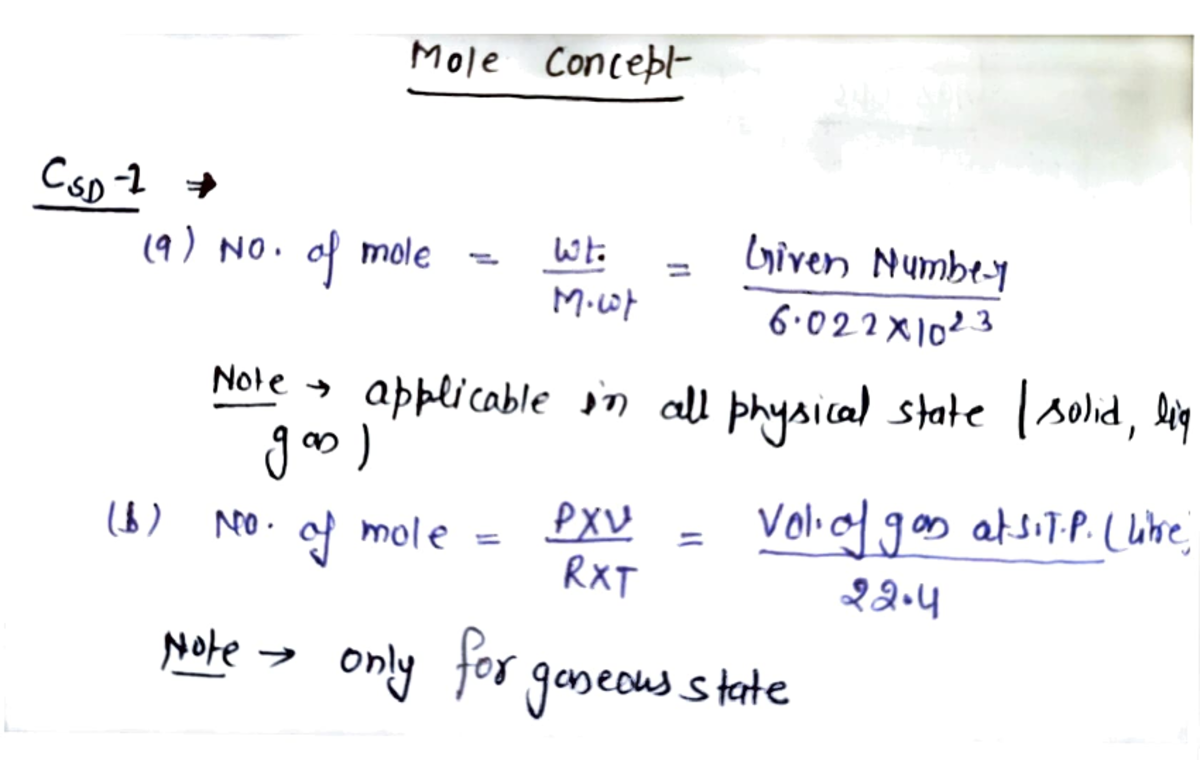 Mole Concept
CSD-1 →
(a) No. of mole = Wt. / M.wt = Given Number / 6.022×10²³
Note → applicable in all physical state (solid, liq
gas)
(b) No. of mole = P×V / R×T = Vol. of gas at S.T.P. (litre) / 22.4
Note → only for gaseous state